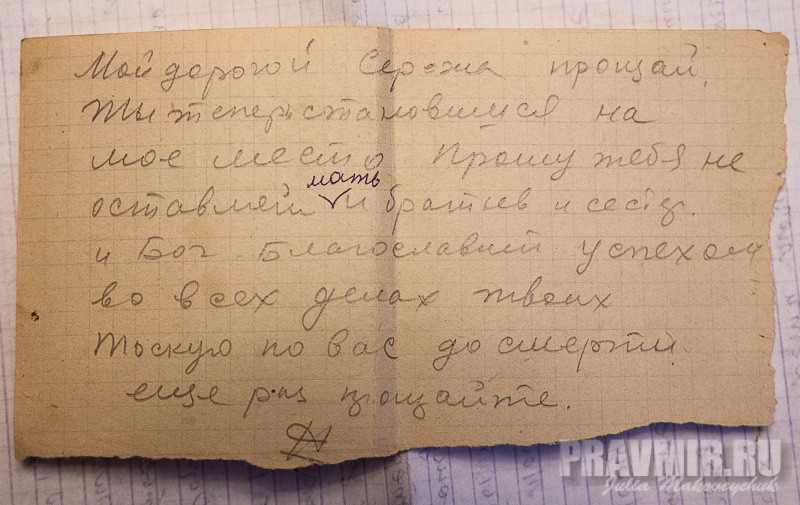 Мой дорогой Сережа прощай,
Ты теперь становишся на
мое место Прошу тебя не
оставляй мать и братьев и сестер.
и Бог Благославит успехом
во всех делах твоих
Тоскую по вас до смерти
еще раз прощайте.
PRAVMIR.RU
Julia Makoveychuk